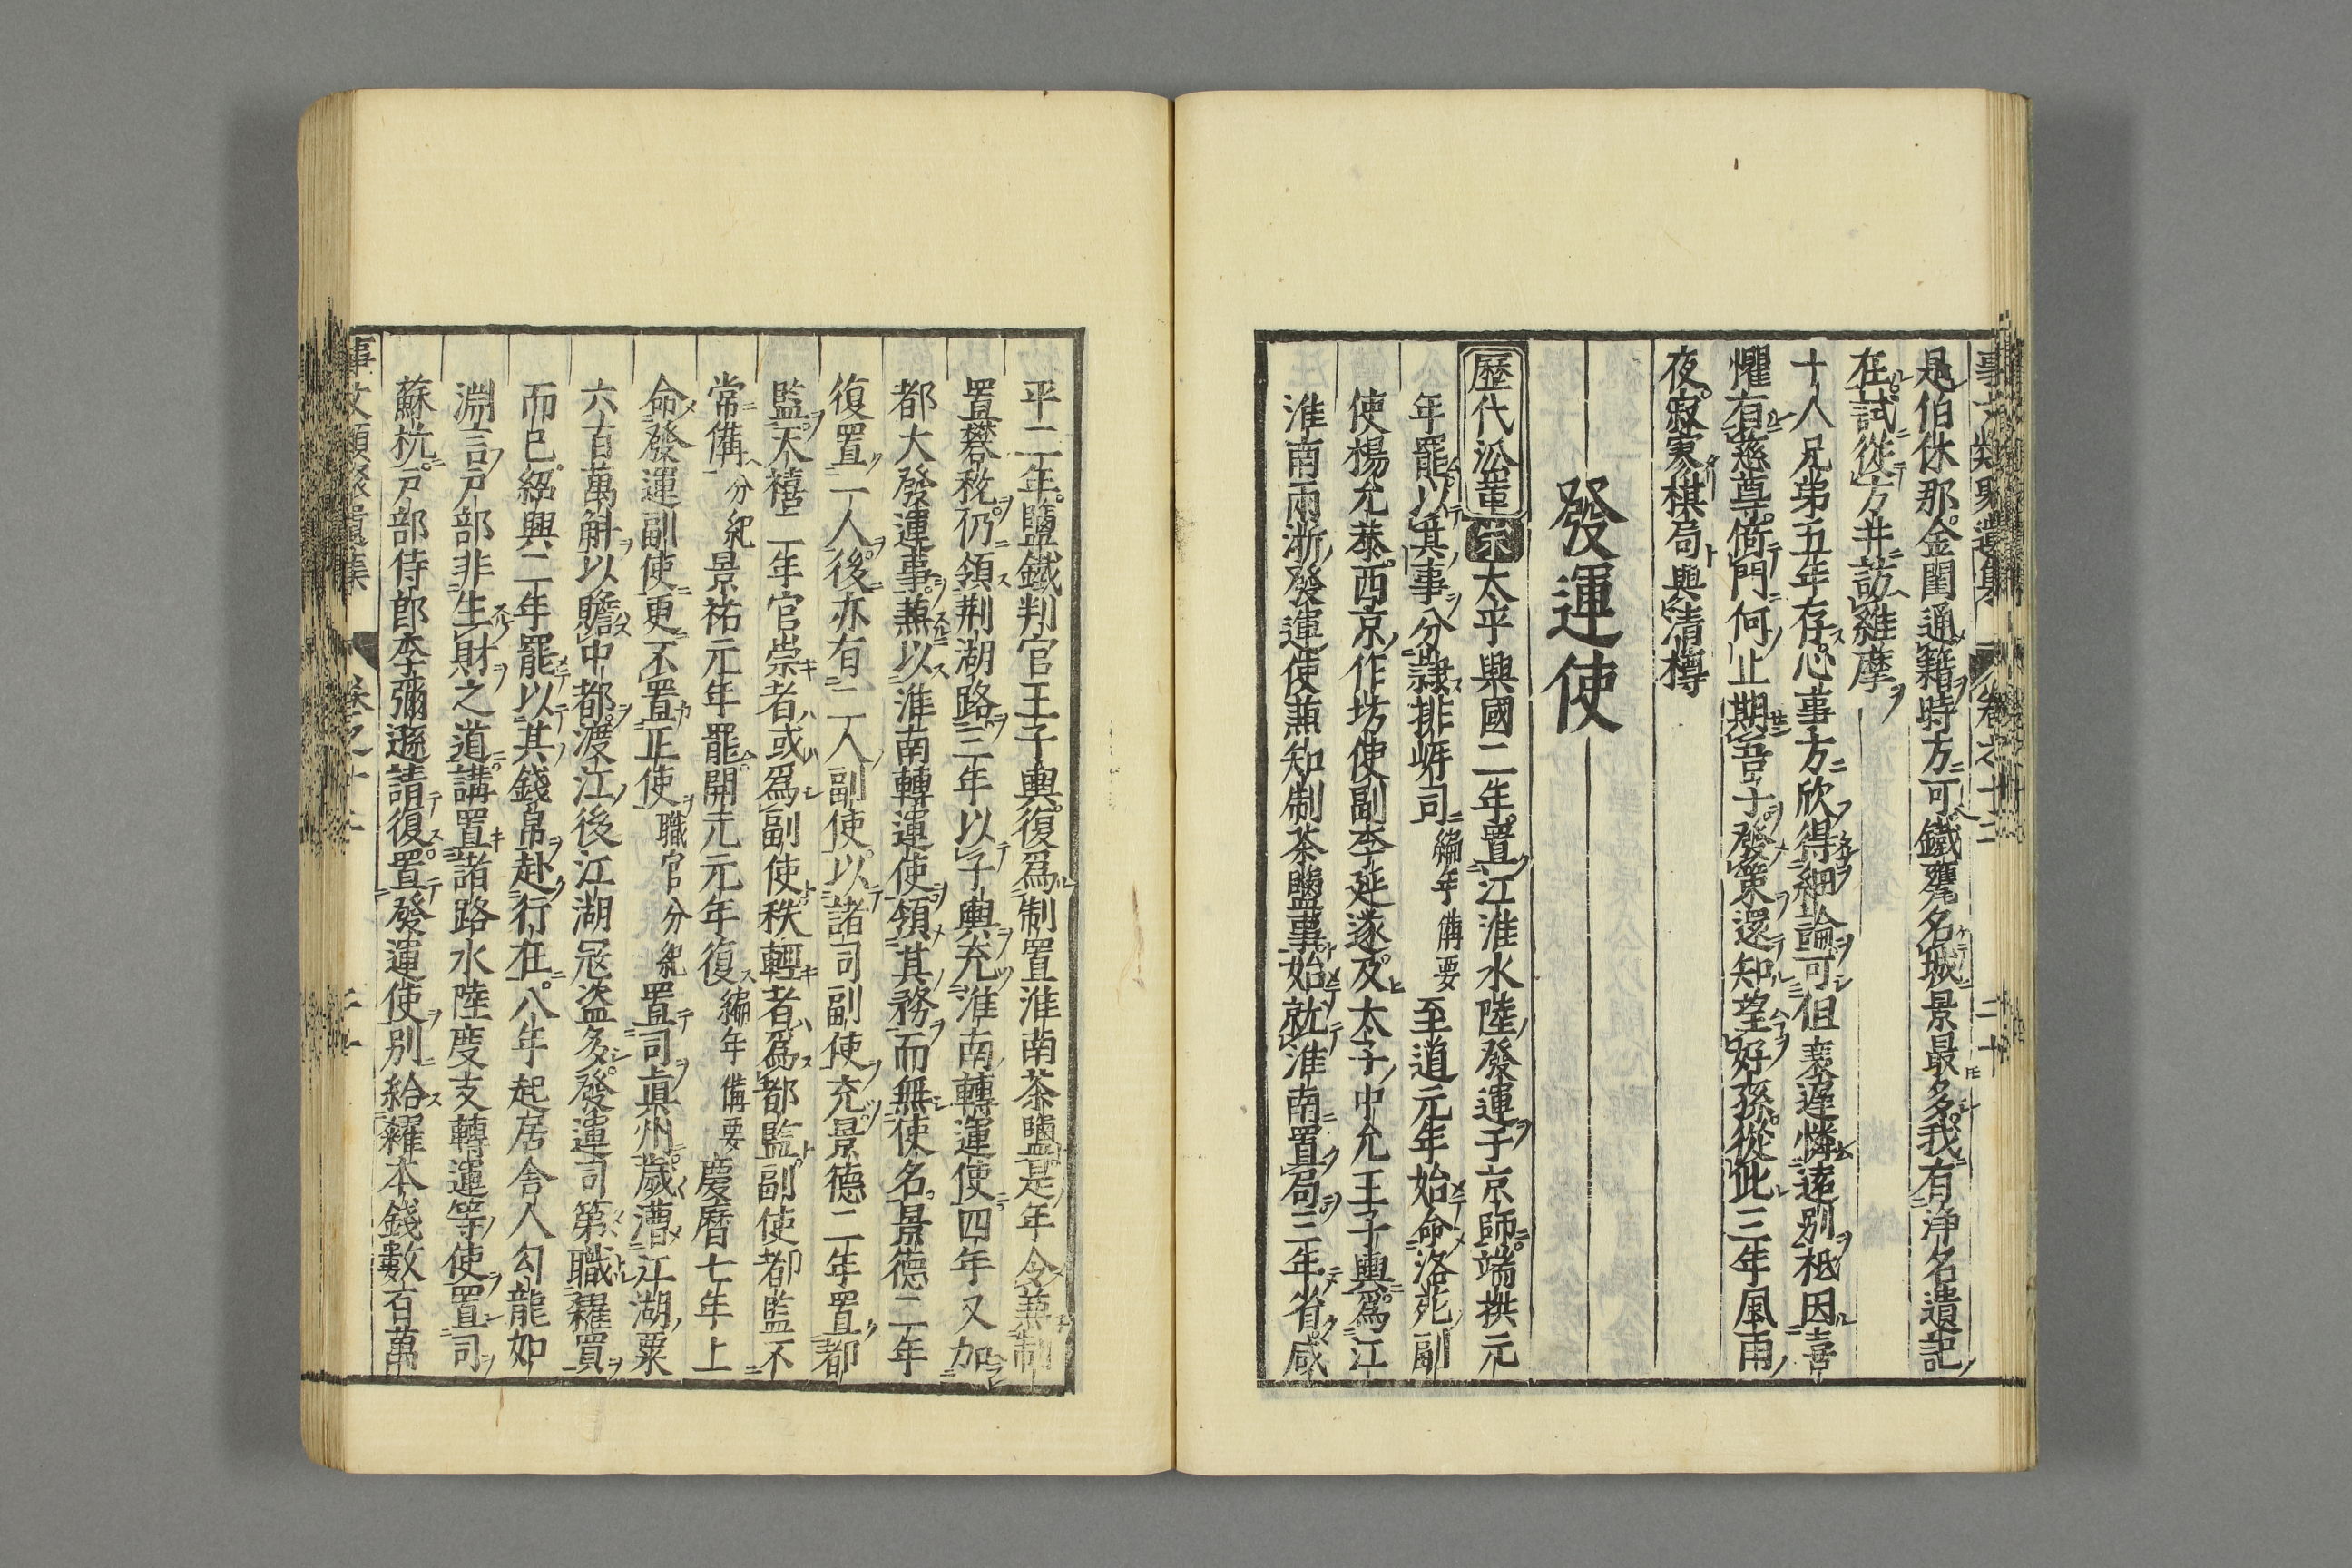 事文類聚遺集 卷之十三 二十
是伯休那金閨通籍時方可鐵甕名城景最多我有淨名遺記
在試從方丈訪維摩
十人兄弟五年存心事方欣得細論可但衰遲憐遠別祗因喜
懼有慈尊倚門何止期吾子發策還知望好孫從此三年風雨
夜寂寥棋局與清樽
發運使
歷代沿革 宋 太平興國二年置江淮水陸發運于京師端拱元
年罷以其事分隸排岸司編年備要至道元年始命洛苑副
使楊允恭西京作坊使副李延遂及太子中允王子輿爲江
淮南兩浙發運使兼知制茶鹽事始就淮南置局三年省咸
平二年鹽鐵判官王子輿復爲制置淮南茶鹽是年令兼制
置礬稅仍領荆湖路三年以子輿充淮南轉運使四年又加
都大發運事兼以淮南轉運使領其務而無使名景德二年
復置一人後亦有二人副使以諸司副使充景德二年置都
監天禧二年官崇者或爲副使秩輕者爲都監副使都監不
常備分紀景祐元年罷開元元年復編年備要慶曆七年上
命發運副使更不置正使職官分紀置司眞州歲漕江湖粟
六百萬斛以贍中都渡江後江湖冦盜多發運司第職糴買
而已紹興二年罷以其錢帛赴行在八年起居舍人勾龍如
淵言戸部非生財之道講置諸路水陸度支轉運等使置司
蘇杭戸部侍郎李彌遜請復置發運使別給糴本錢數百萬
事文類聚遺集 卷之十三